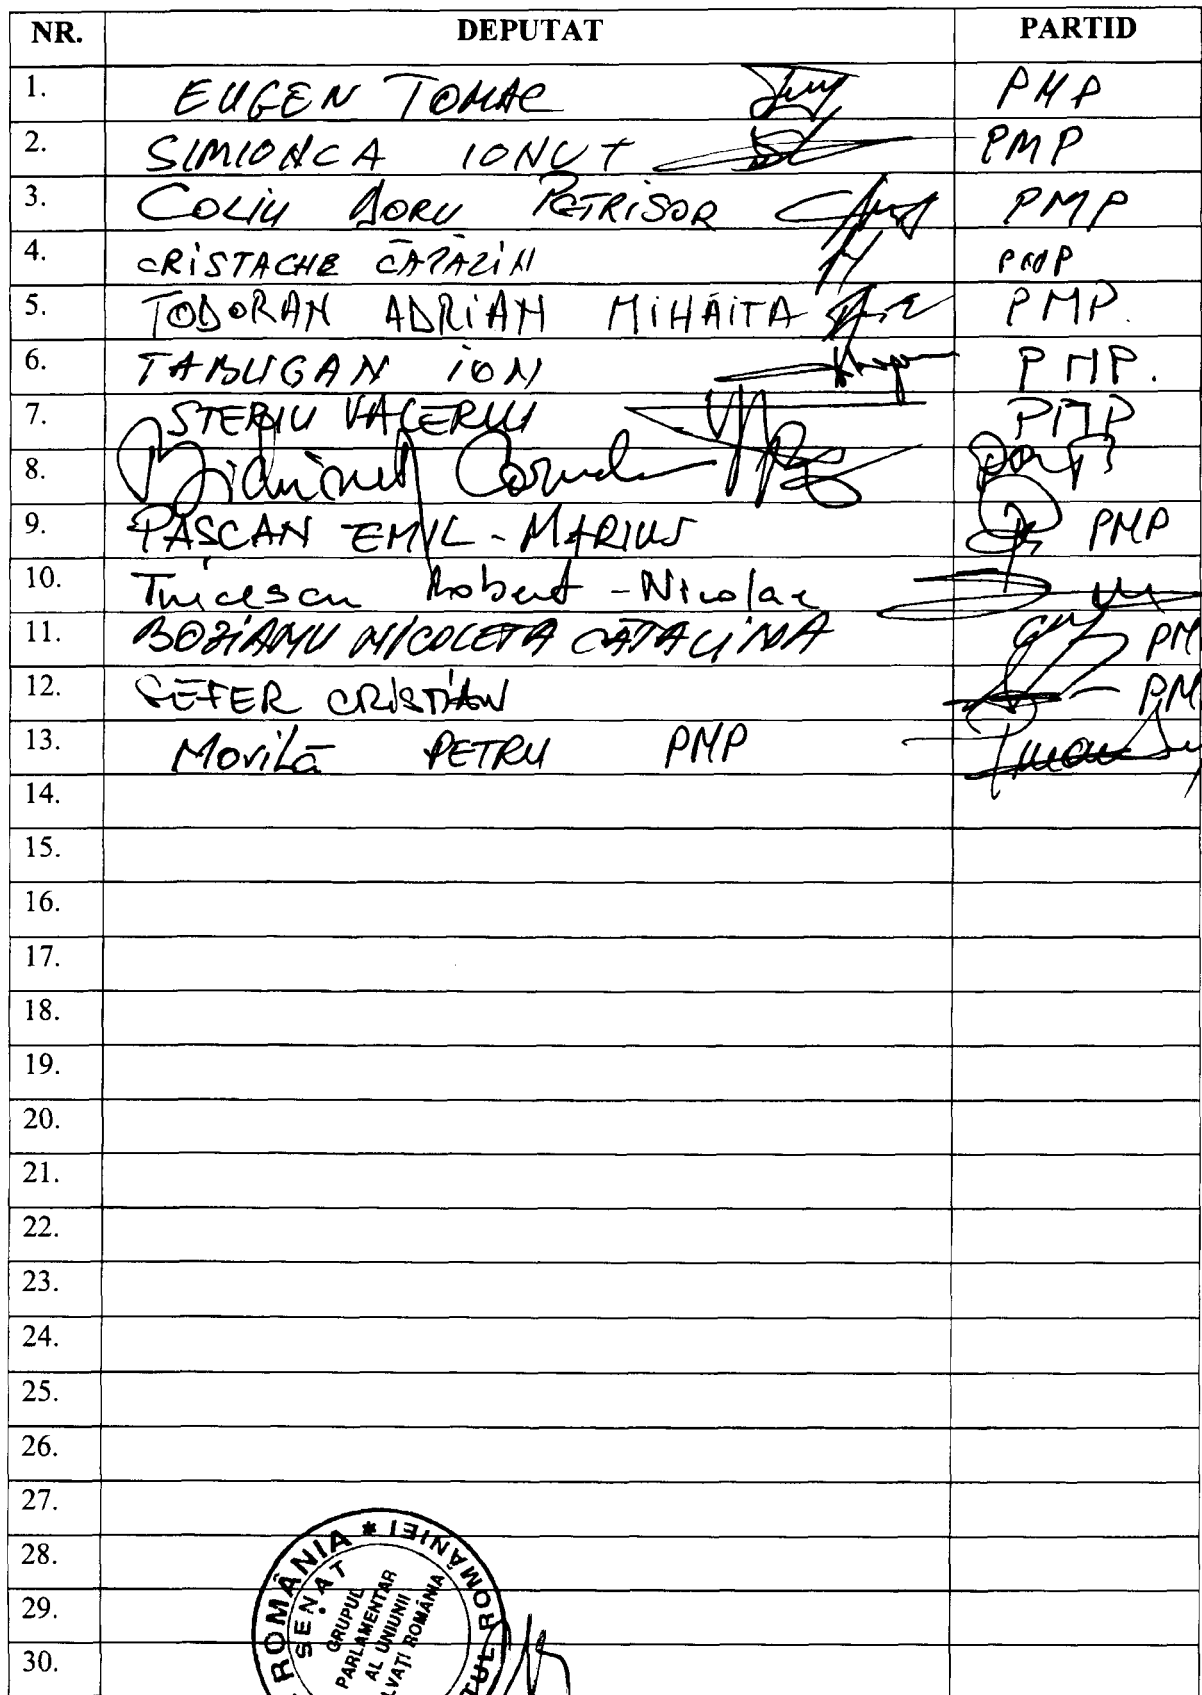 NR. DEPUTAT PARTID
1. EUGEN TOMAC PMP
2. SIMIONCA IONUT PMP
3. COLIU DORU PETRISOR PMP
4. CRISTACHE CĂTĂLIN PMP
5. TODORAN ADRIAN MIHĂITA PMP.
6. TABUGAN ION PMP.
7. STERIU VALERIU PMP
8.
9. PASCAN EMIL-MARIUS PMP
10. Robert-Nicolae
11. BOZIANU NICOLETA CĂTĂLINA PM
12. SEFER CRISTIAN PM
13. Movilă PETRU PMP
14.
15.
16.
17.
18.
19.
20.
21.
22.
23.
24.
25.
26.
27.
28.
29.
30.
ROMÂNIA * ROMÂNIEI
SENAT
GRUPUL
PARLAMENTAR
AL UNIUNII
ROMÂNIA